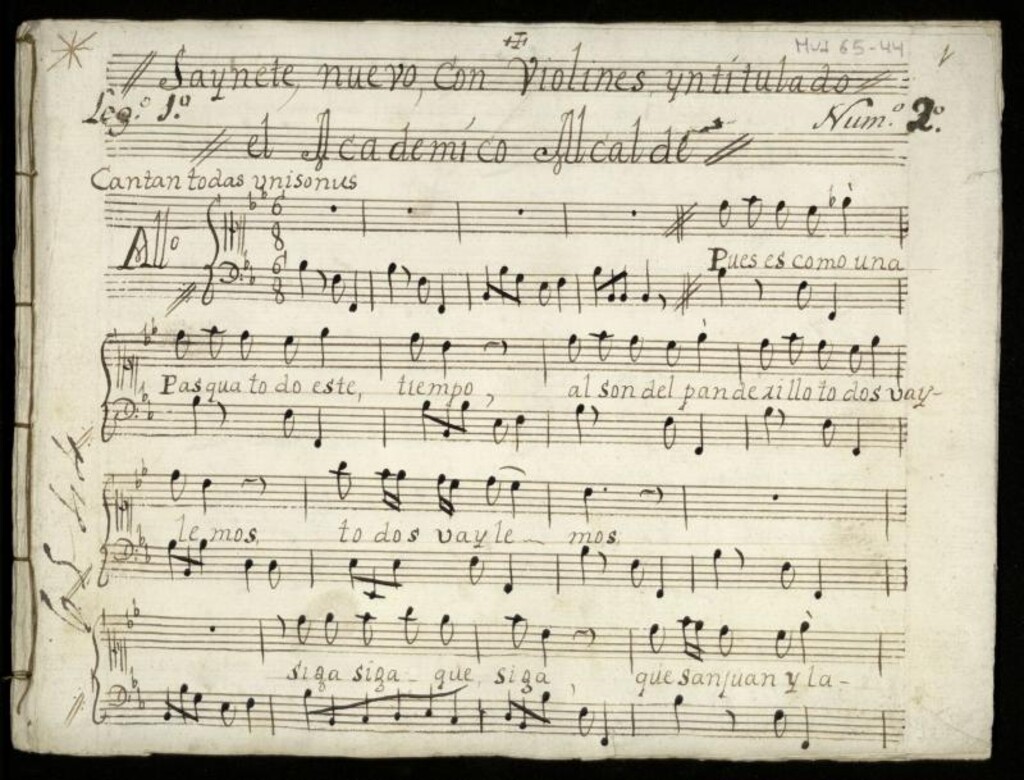 Mus 65-44
Saynete, nuevo, Con Violines, yntitulado
Leg.º 1.º
Num.º 2.º
el Academico Alcalde
Cantan todas ynisonus
All.º
Pues es como una
Pasqua to do este, tiempo, al son del pande rillo to dos vay-
le mos, to dos vay le - mos,
siga siga - que, siga que san juan y la-